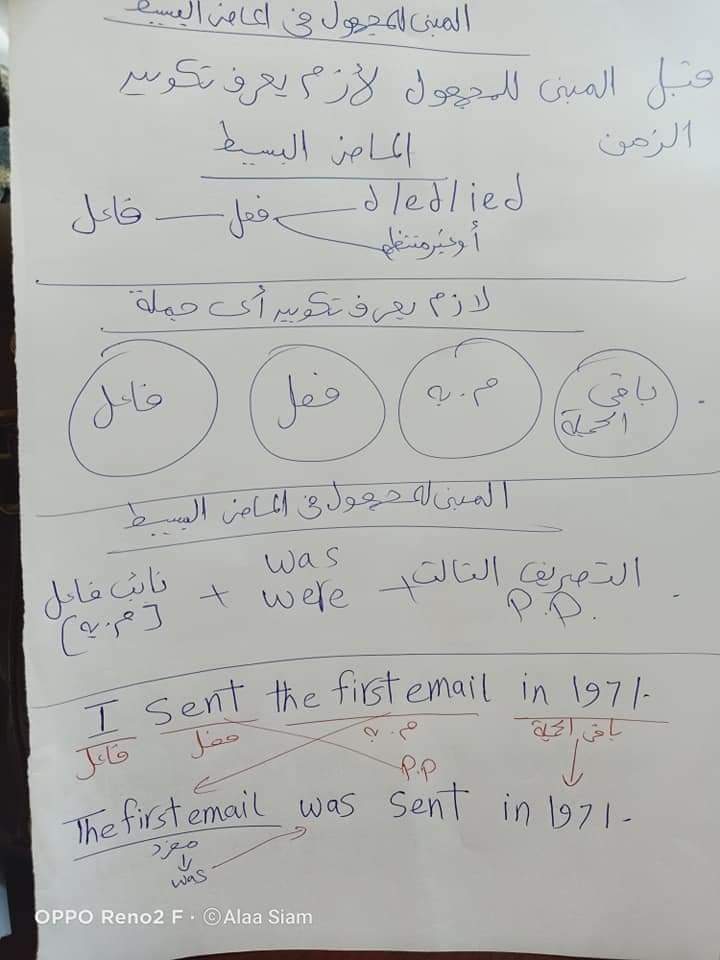 المبنى للمجهول فى الماضى البسيط
قبل المبنى للمجهول لأزم يعرف تكوين
الزمن
الماضى البسيط
فاعل — فعل d/ed/ied
أو غير منتظم
لازم يعرف تكوين أى جملة
فاعل فعل م.به باقى الجملة
المبنى للمجهول فى الماضى البسيط
نائب فاعل + was + التصريف التالت
[م.به] were P.P.
I sent the first email in 1971.
فاعل فعل م.به باقى الجملة
P.P
The first email was sent in 1971.
مفرد
was
OPPO Reno2 F · ©Alaa Siam